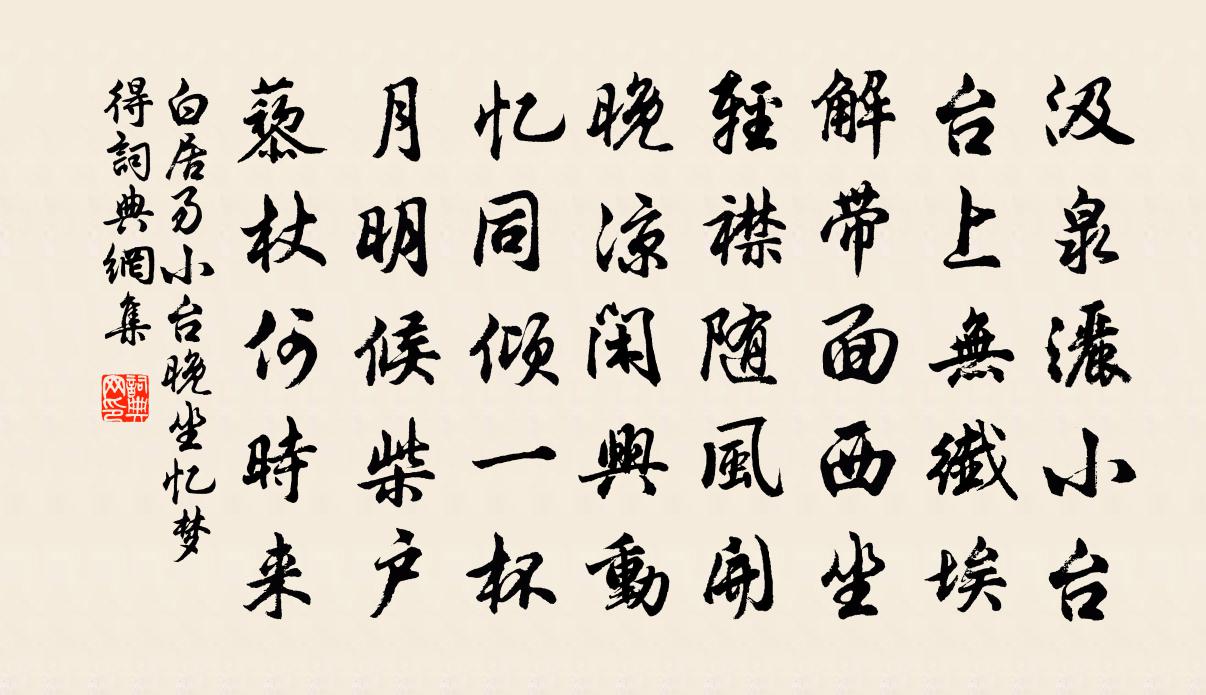 汲泉灑小台
台上無纖埃
解帶面西坐
輕襟随風開
晚凉閑興動
忆同倾一杯
月明候柴户
藜杖何時来
白居易小台晚坐忆梦
得詞典網集
詞典网印